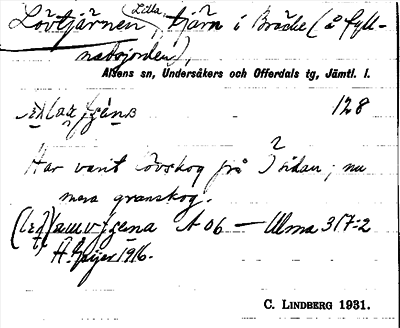 Lövtjärnen, Lilla, tjärn i Bräcke (å Gyll-
nåsjorden),
Alsens sn, Undersåkers och Offerdals tg, Jämtl. l.
128
Har varit lövskog på 1 sidan; nu
mera granskog.
A 06 — Ulma 317:2
H. Geijer 1916.
C. LINDBERG 1931.